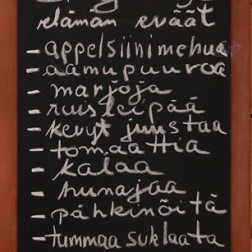 elämän eväät
- appelsiinimehua
- aamupuuroa
- marjoja
- ruisleipää
- kevyt juustaa
- tomaattia
- kalaa
- hunajaa
- pähkinöitä
- tummaa suklaata